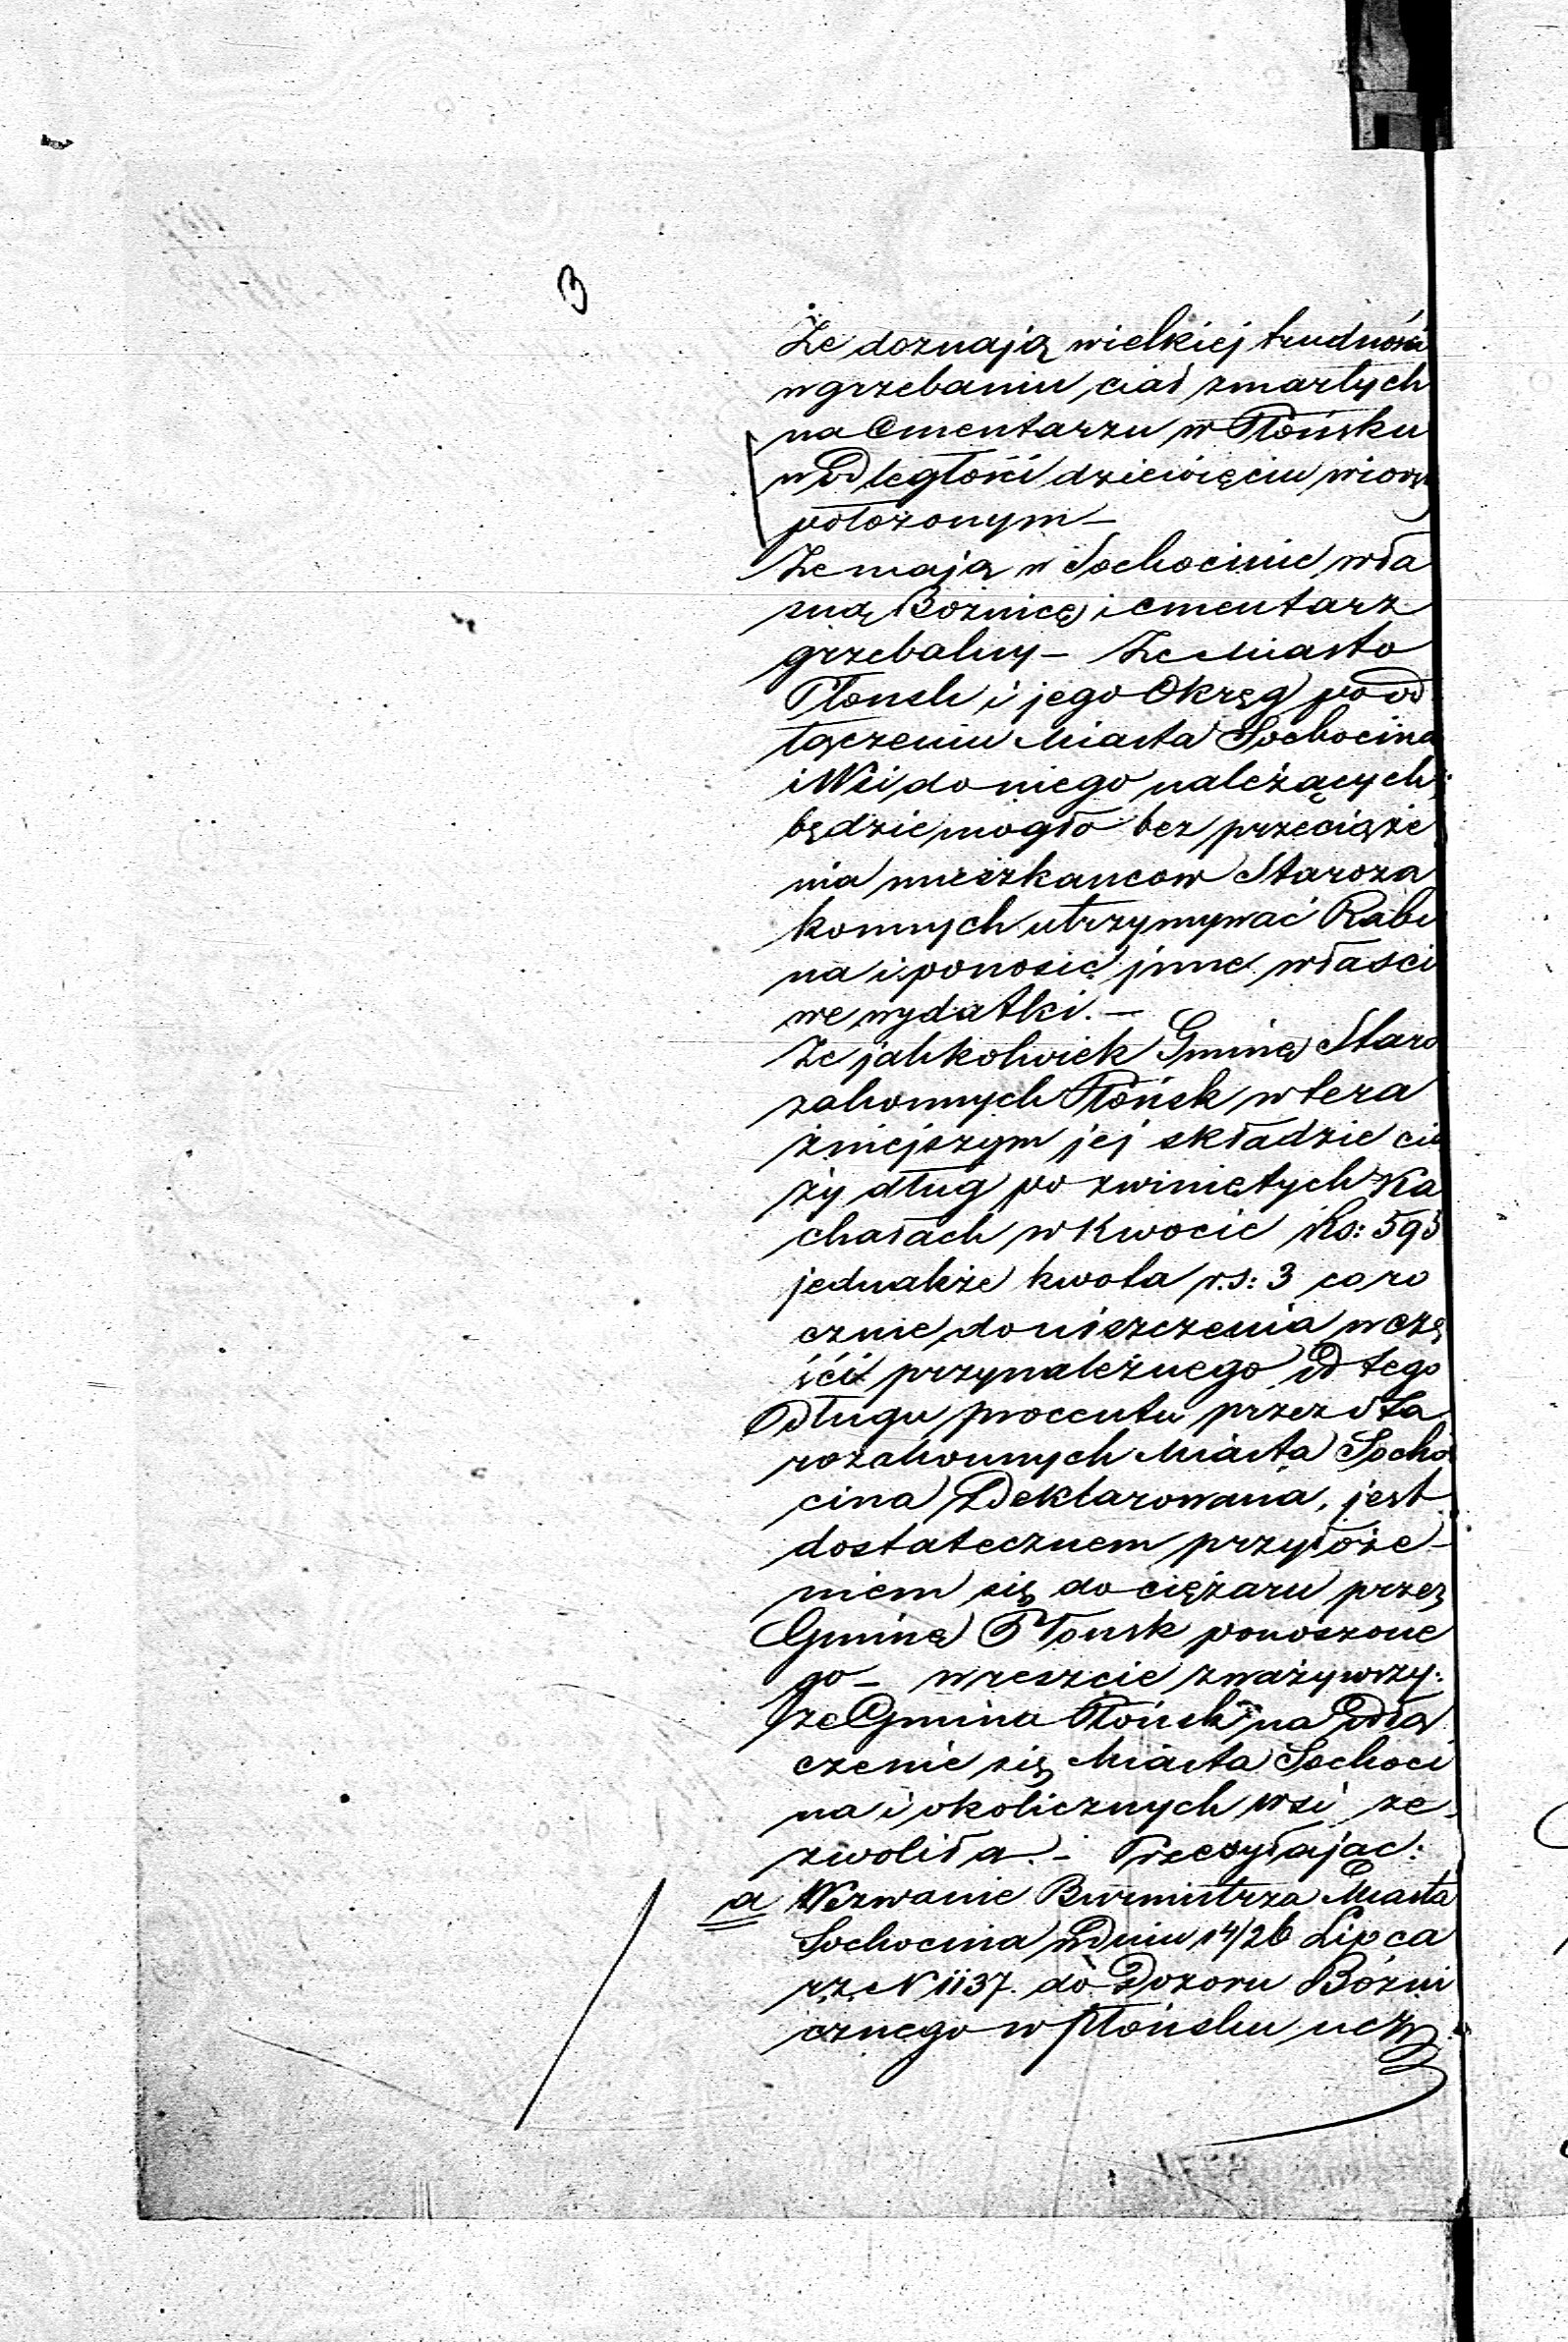 3
Że doznają wielkiej trudności
w grzebaniu ciał zmarłych
na Cmentarzu w Płońsku
w Odległości dziewięciu wiorst
położonym –
Że mają w Sochocinie wła
sną Bożnicę i cmentarz
grzebalny – Że Miasto
Płonsk i jego Okręg po od
łączeniu Miasta Sochocina
i Wsi do niego należących
będzie mogło bez przeciąże
nia mieszkancow Staroza
konnych utrzymywać Rabi
na i ponosić jnne właści
we wydatki. –
Że jakkolwiek Gminę Staro
zakonnych Płońsk w tera
żniejszym jej składzie cią
ży dług po zwiniętych Ka
chałach w Kwocie Rs: 595
jednakże kwota r.s: 3 coro
cznie do uiszczenia w czę
ści przynależnego od tego
Długu procentu przez Sta
rozakonnych Miasta Socho
cina Zdeklarowana, jest
dostatecznem przyłoże-
niem się do ciężaru przez
Gminę Płonsk ponoszone
go – wreszcie zważywszy:
że Gmina Płońsk na Odłą
czenie się Miasta Sochoci
na i okolicznych wsi ze
zwoliła. – Przesyłając:
a Wezwanie Burmistrza Miasta
Sochocina w Dniu 14/26 Lipca
r.z. N 1137. do Dozoru Bożni
cznego w Płońsku